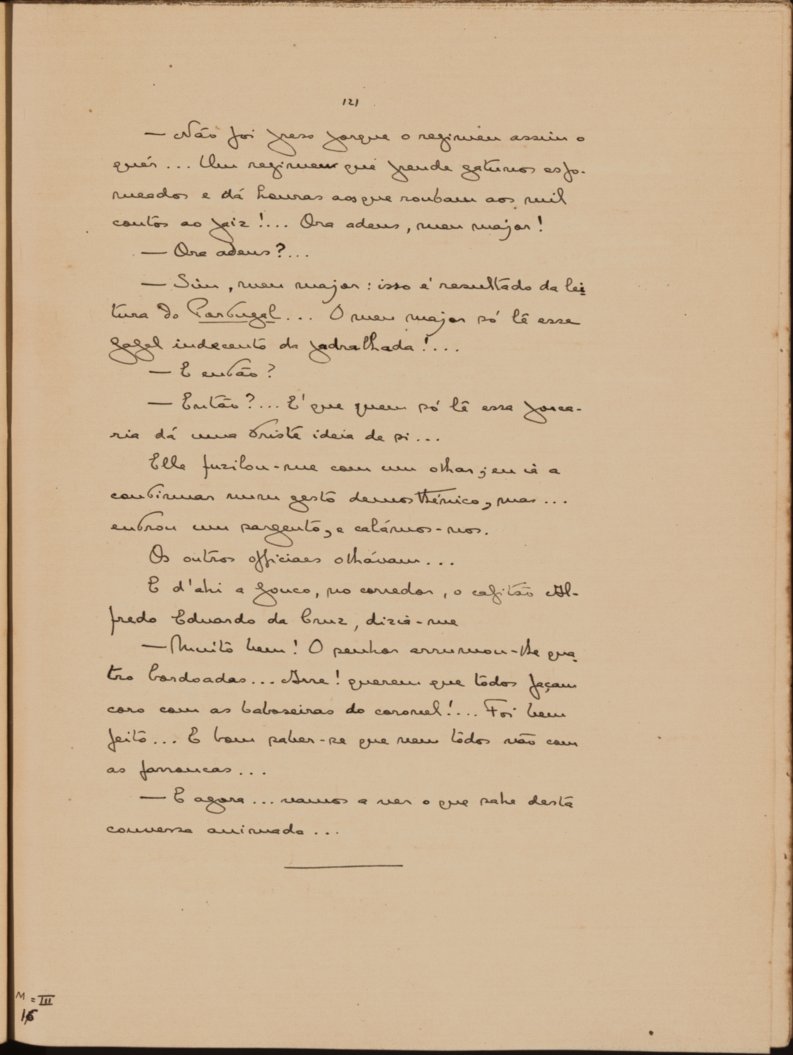 121
— Não foi preso porque o regimen assim o
quér... Um regimen que prende gatunos esfo-
meados e dá honras aos que roubam aos mil
contos ao paiz!... Ora adeus, meu major!
— Ora adeus?...
— Sim, meu major: isso é resultado da lei-
tura do Portugal... O meu major só lê esse
papel indecente da padralhada!...
— E então?
— Então?... E' que quem só lê essa porca-
ria dá uma triste ideia de si...
Elle fuzilou-me com um olhar; eu ia a
continuar num gesto demosthénico, mas...
entrou um sargento, e calámos-nos.
Os outros officiaes olhávam...
E d'ahi a pouco, no corredor, o capitão Al-
fredo Eduardo da Cruz, dizia-me
— Muito bem! O senhor arrumou-lhe qua-
tro bordoadas... Arre! querem que todos façam
coro com as baboseiras do coronel!... Foi bem
feito... E bom saber-se que nem tôdos vão com
as farroncas...
— E agora... vamos a ver o que sahe desta
conversa animada...
M = III
16